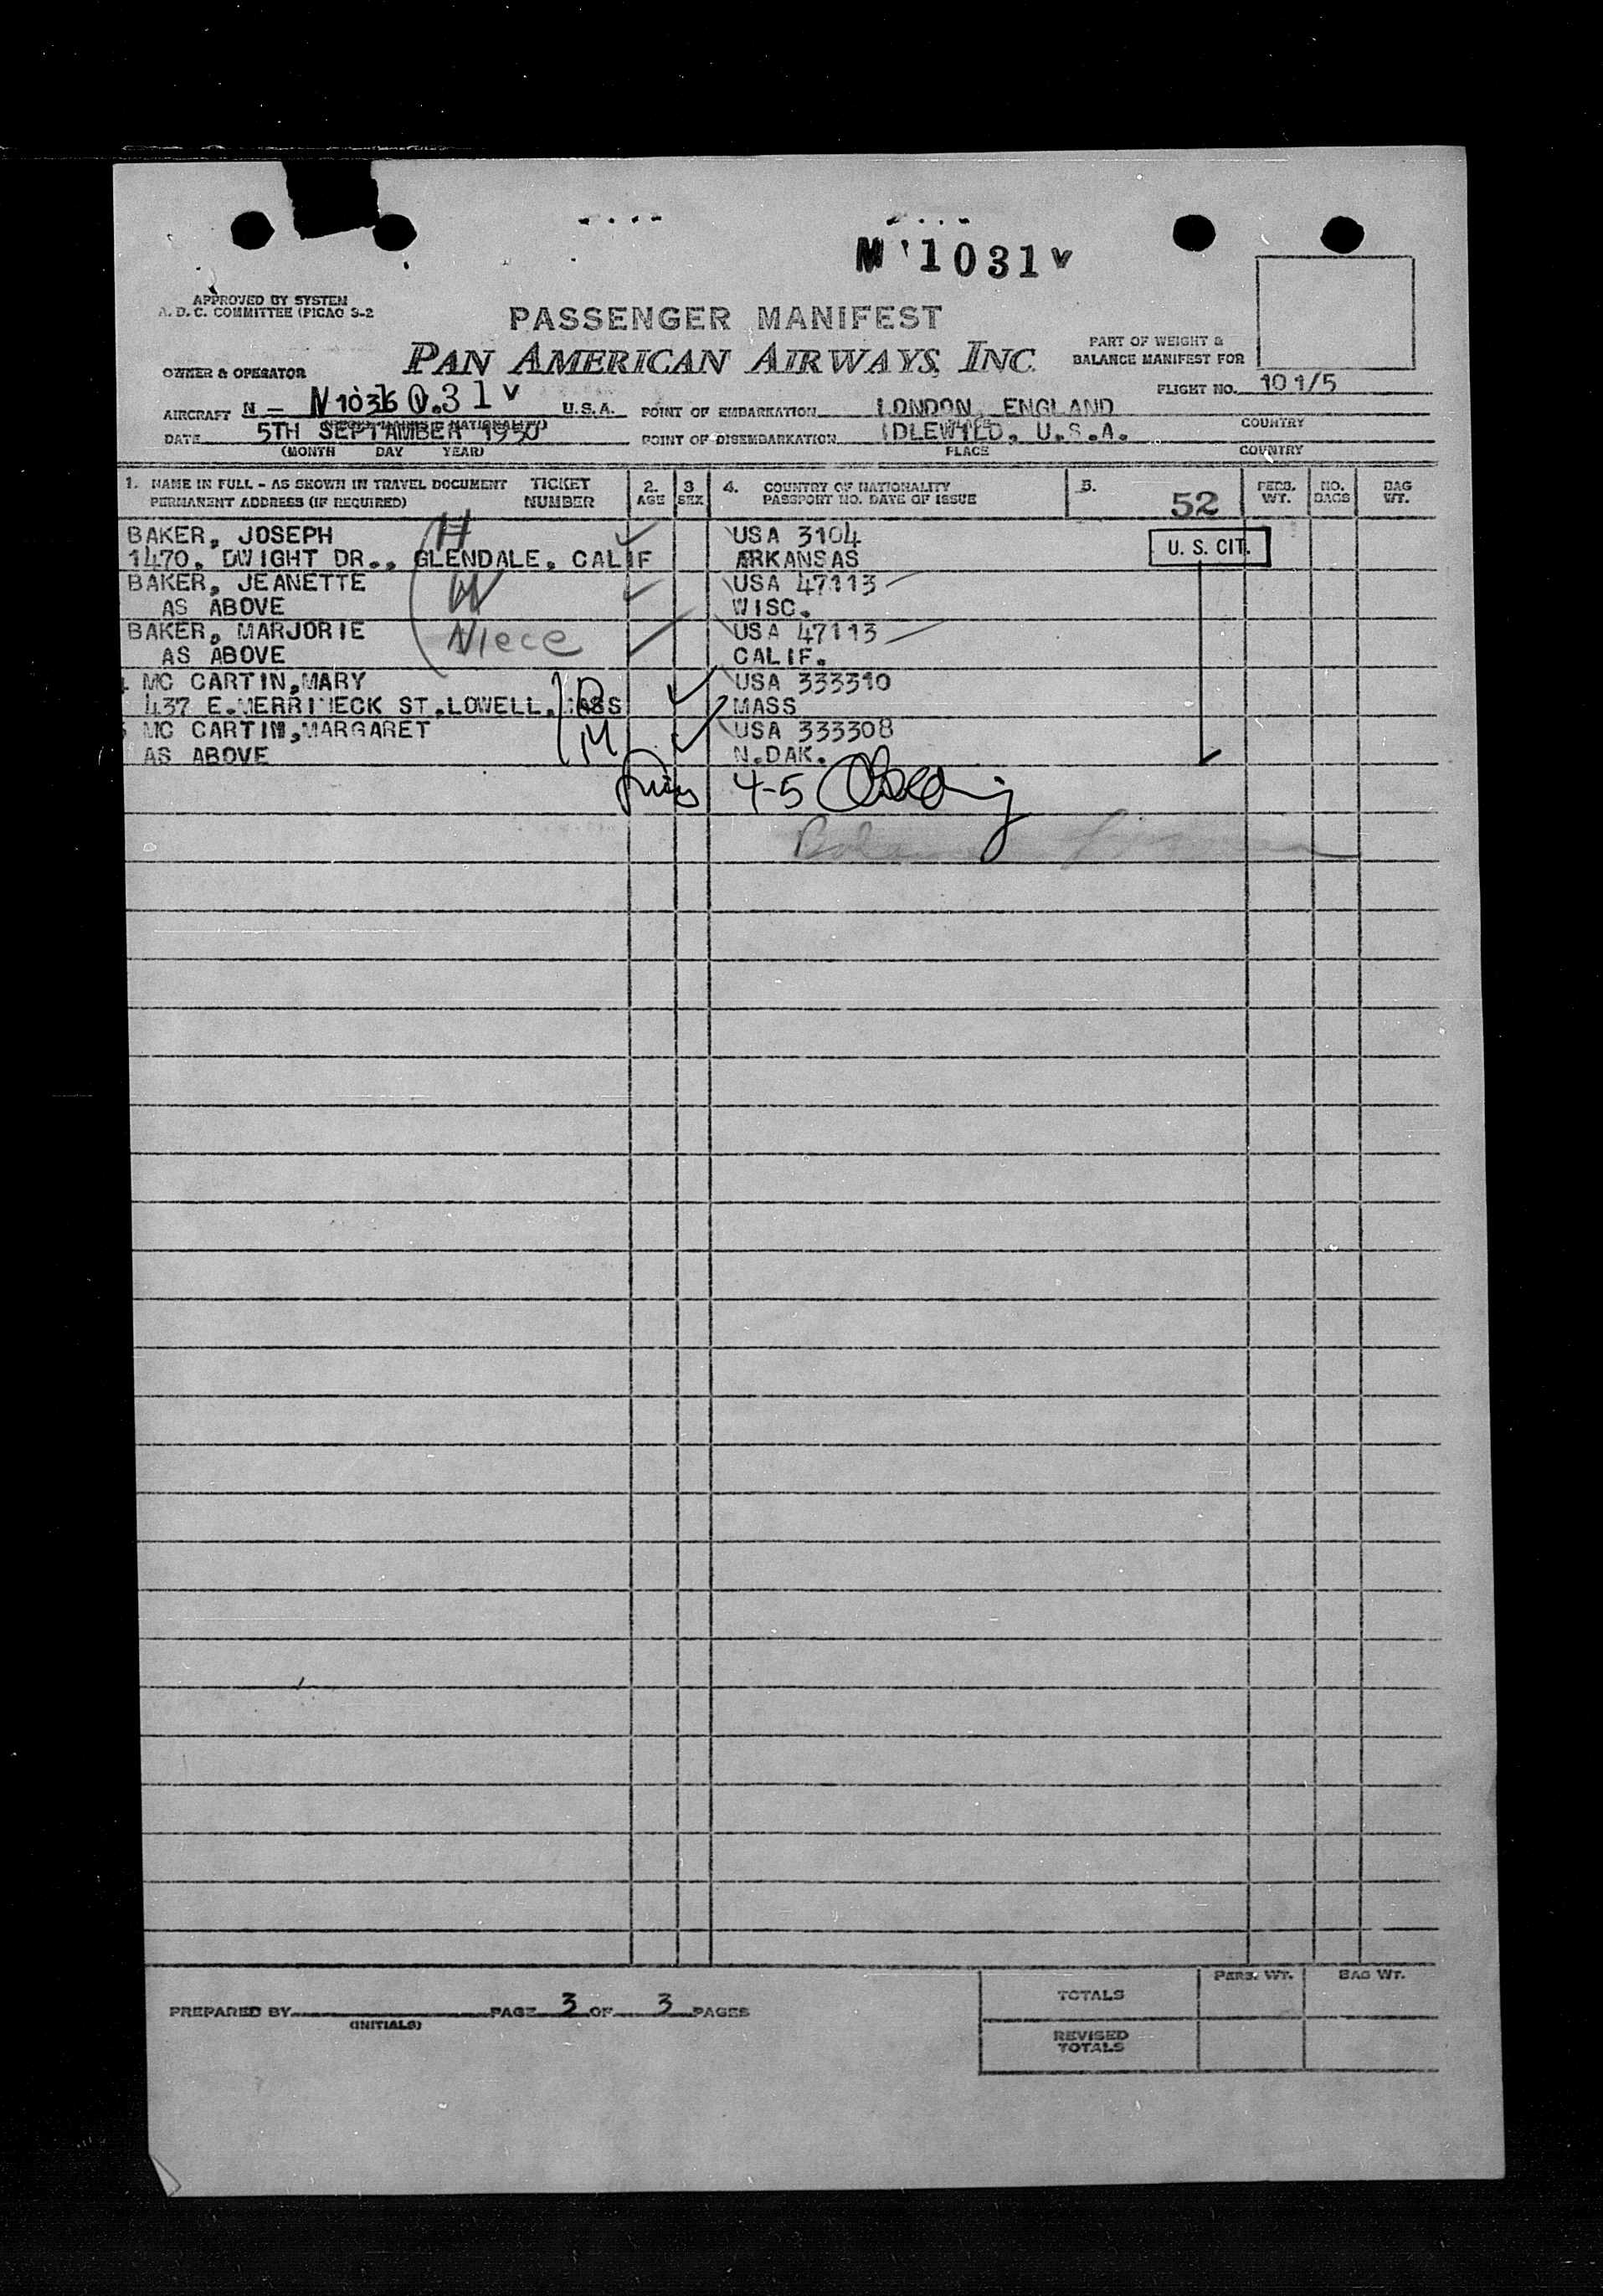 M 1031 V
APPROVED BY SYSTEM
A. D. C. COMMITTEE (PICAO S-2
PASSENGER MANIFEST
PAN AMERICAN AIRWAYS, INC.
PART OF WEIGHT &
BALANCE MANIFEST FOR
OWNER & OPERATOR
FLIGHT NO. 101/5
AIRCRAFT N - N 1031 V U.S.A. POINT OF EMBARKATION LONDON, ENGLAND
DATE 5TH SEPTAMBER 1950 POINT OF DISEMBARKATION IDLEWILD, U.S.A. COUNTRY
(MONTH DAY YEAR) PLACE COUNTRY
1. NAME IN FULL - AS SHOWN IN TRAVEL DOCUMENT TICKET 2. 3 4. COUNTRY OF NATIONALITY 5. 52 PERS. NO. BAG
PERMANENT ADDRESS (IF REQUIRED) NUMBER AGE SEX PASSPORT NO. DATE OF ISSUE WT. BAGS WT.
BAKER, JOSEPH H USA 3104
1470, DWIGHT DR., GLENDALE, CALIF ARKANSAS U. S. CIT.
BAKER, JEANETTE W USA 47113
AS ABOVE WISC.
BAKER, MARJORIE Niece USA 47113
AS ABOVE CALIF.
4 MC CARTIN,MARY D USA 333310
437 E.MERRIMECK ST.LOWELL. MASS MASS
5 MC CARTIN,MARGARET M USA 333308
AS ABOVE N.DAK.
4-5
PREPARED BY PAGE 3 OF 3 PAGES
(INITIALS)
PERS. WT. BAG WT.
TOTALS
REVISED
TOTALS